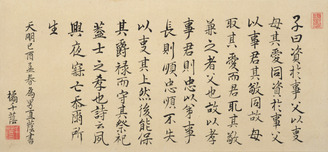 子曰資於事父以事
母其愛同資於事父
以事君其敬同故母
取其愛而君取其敬
兼之者父也故以孝
事君則忠以弟事
長則順忠順不失
以事其上然後能保
其爵祿而守其祭祀
蓋士之孝也詩云夙
興夜寐亡忝爾所
生
天明己酉孟春為 書
橘千蔭